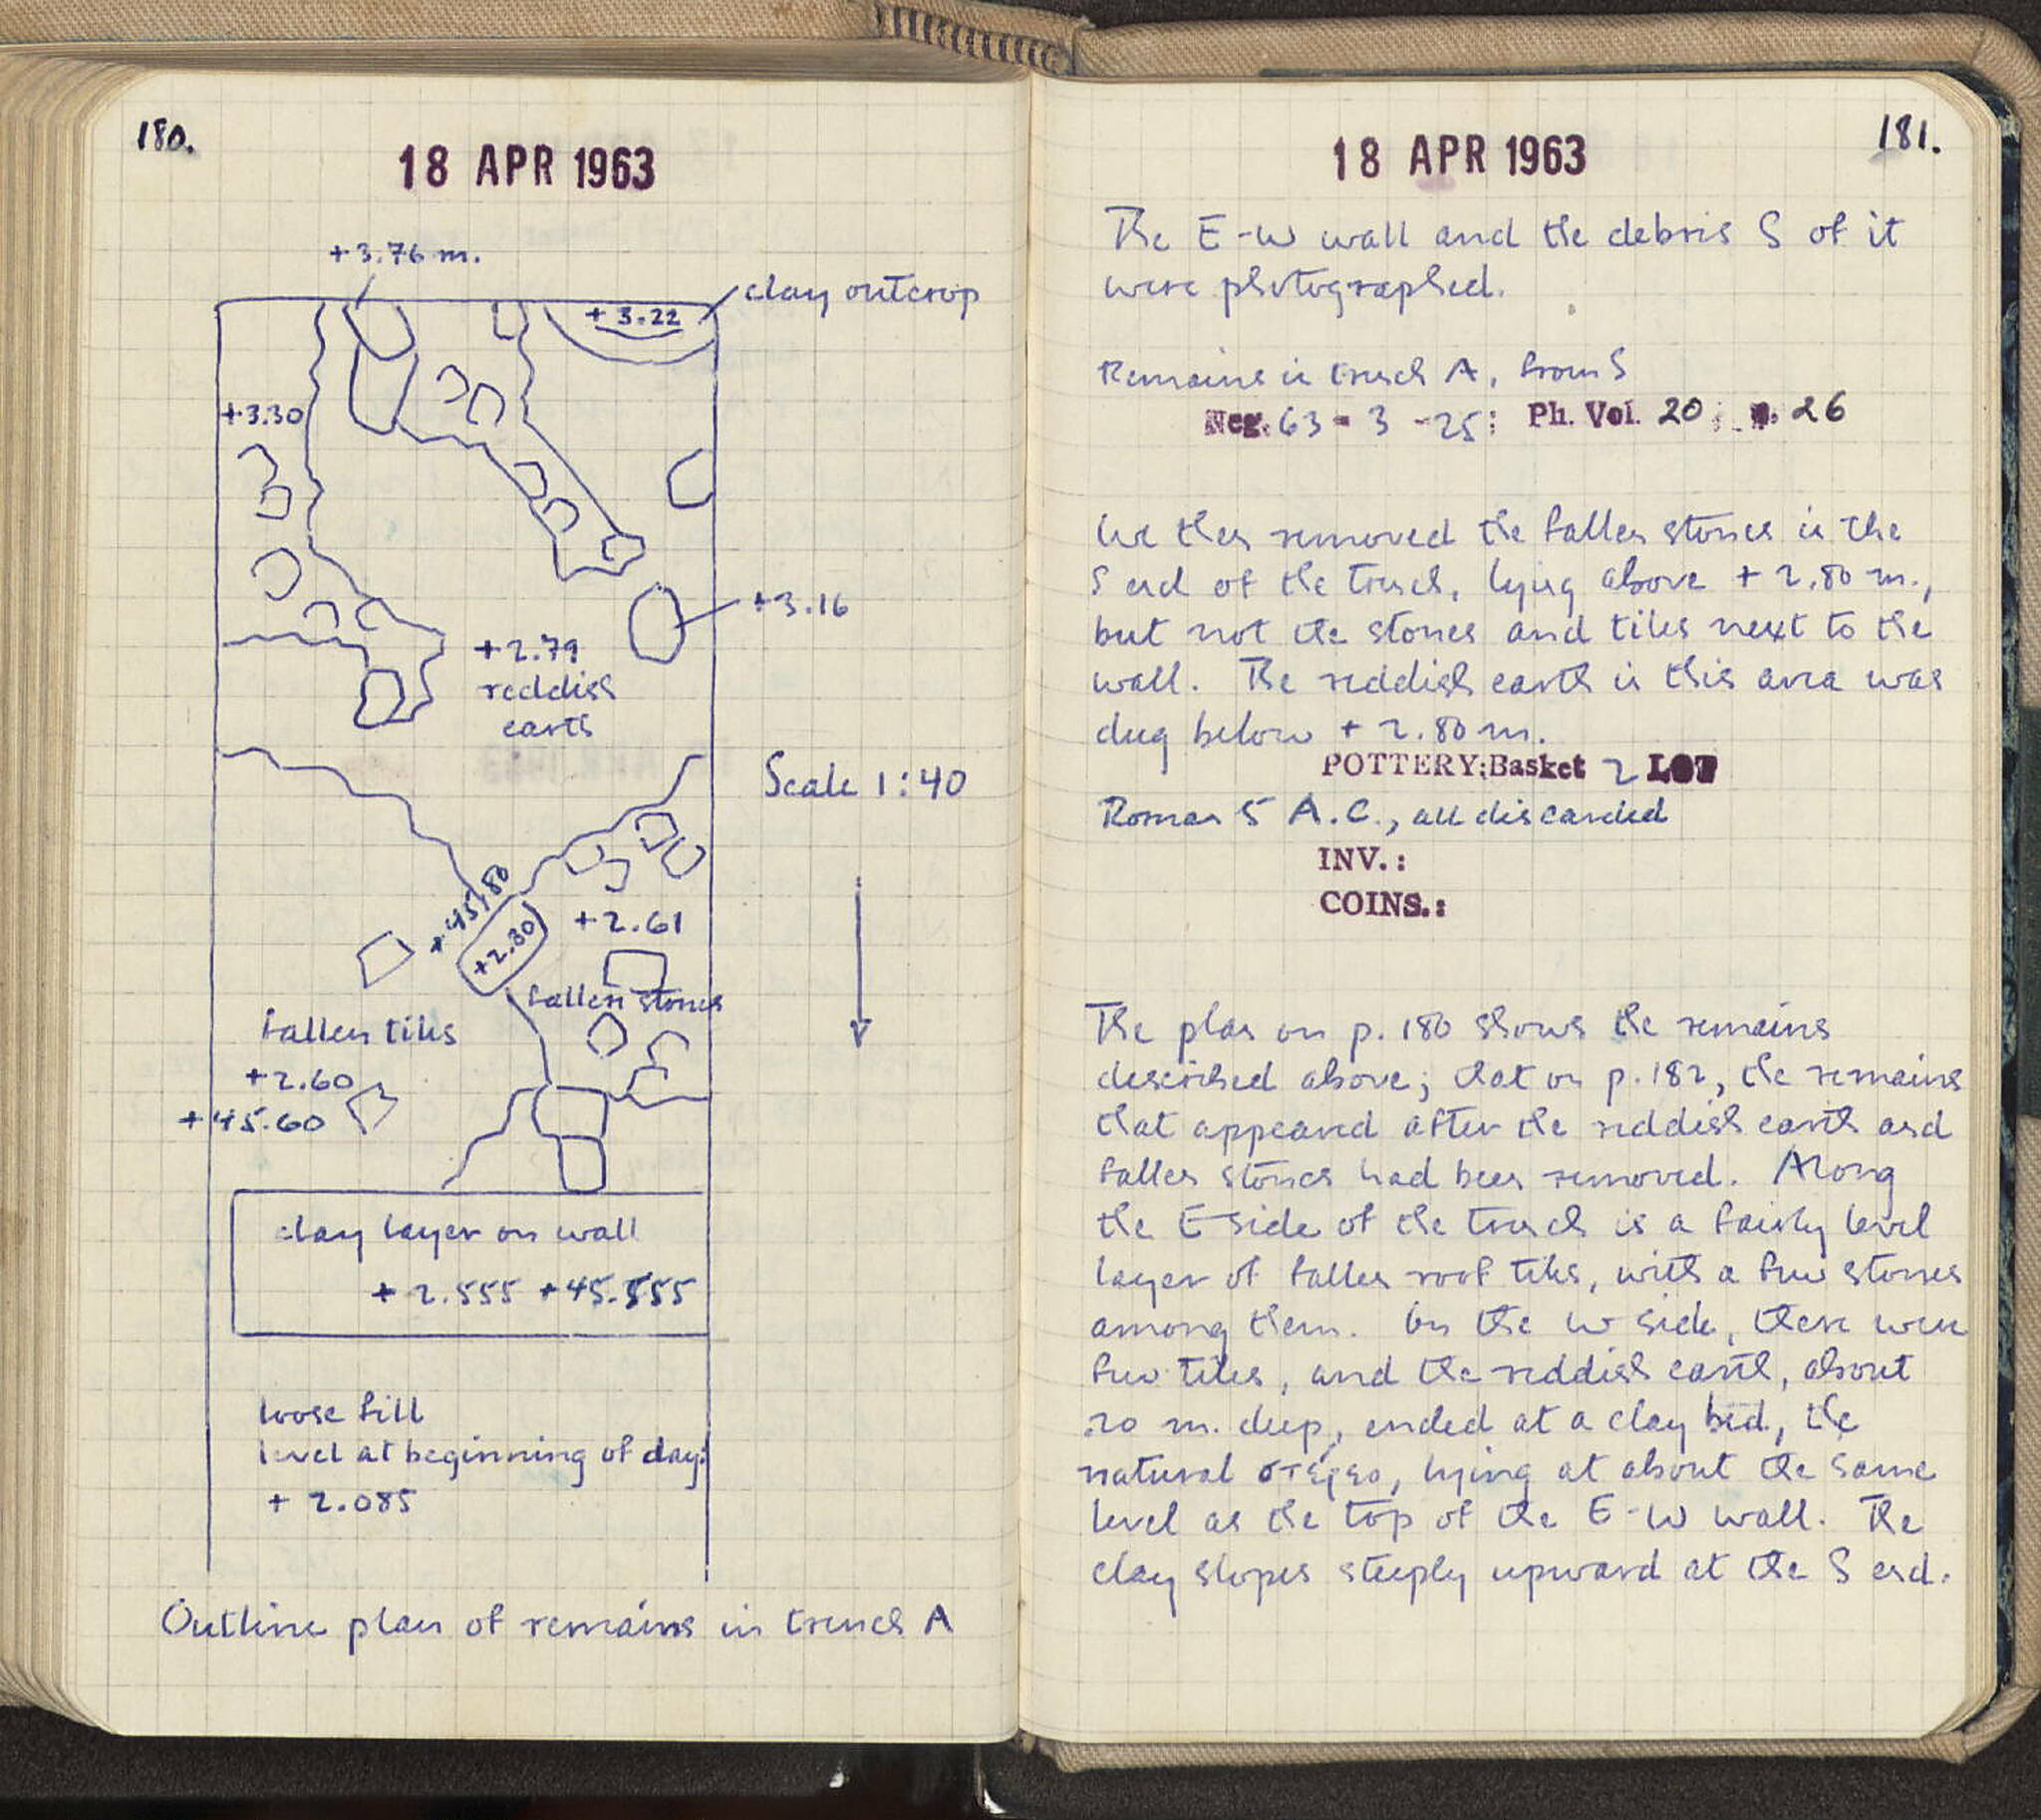 180.
18 APR 1963
+3.76 m.
clay outcrop
+ 3.22
+3.30
+3.16
+2.79
reddish
earth
Scale 1:40
+45.80
+2.30
+2.61
fallen stones
fallen tiles
+2.60
+45.60
clay layer on wall
+ 2.555 +45.555
loose fill
level at beginning of day:
+ 2.085
Outline plan of remains in trench A
181.
18 APR 1963
The E-W wall and the debris S of it
were photographed.
Remains in trench A, from S
Neg. 63 - 3 - 25; Ph. Vol. 20, p. 26
We then removed the fallen stones in the
S end of the trench, lying above + 2.80 m.,
but not the stones and tiles next to the
wall. The reddish earth in this area was
dug below + 2.80 m.
POTTERY: Basket 2 LOT
Roman 5 A.C., all discarded
INV.:
COINS.:
The plan on p. 180 shows the remains
described above; that on p. 182, the remains
that appeared after the reddish earth and
fallen stones had been removed. Along
the E side of the trench is a fairly level
layer of fallen roof tiles, with a few stones
among them. On the W side, there were
few tiles, and the reddish earth, about
.20 m. deep, ended at a clay bed, the
natural στέρεο, lying at about the same
level as the top of the E-W wall. The
clay slopes steeply upward at the S end.